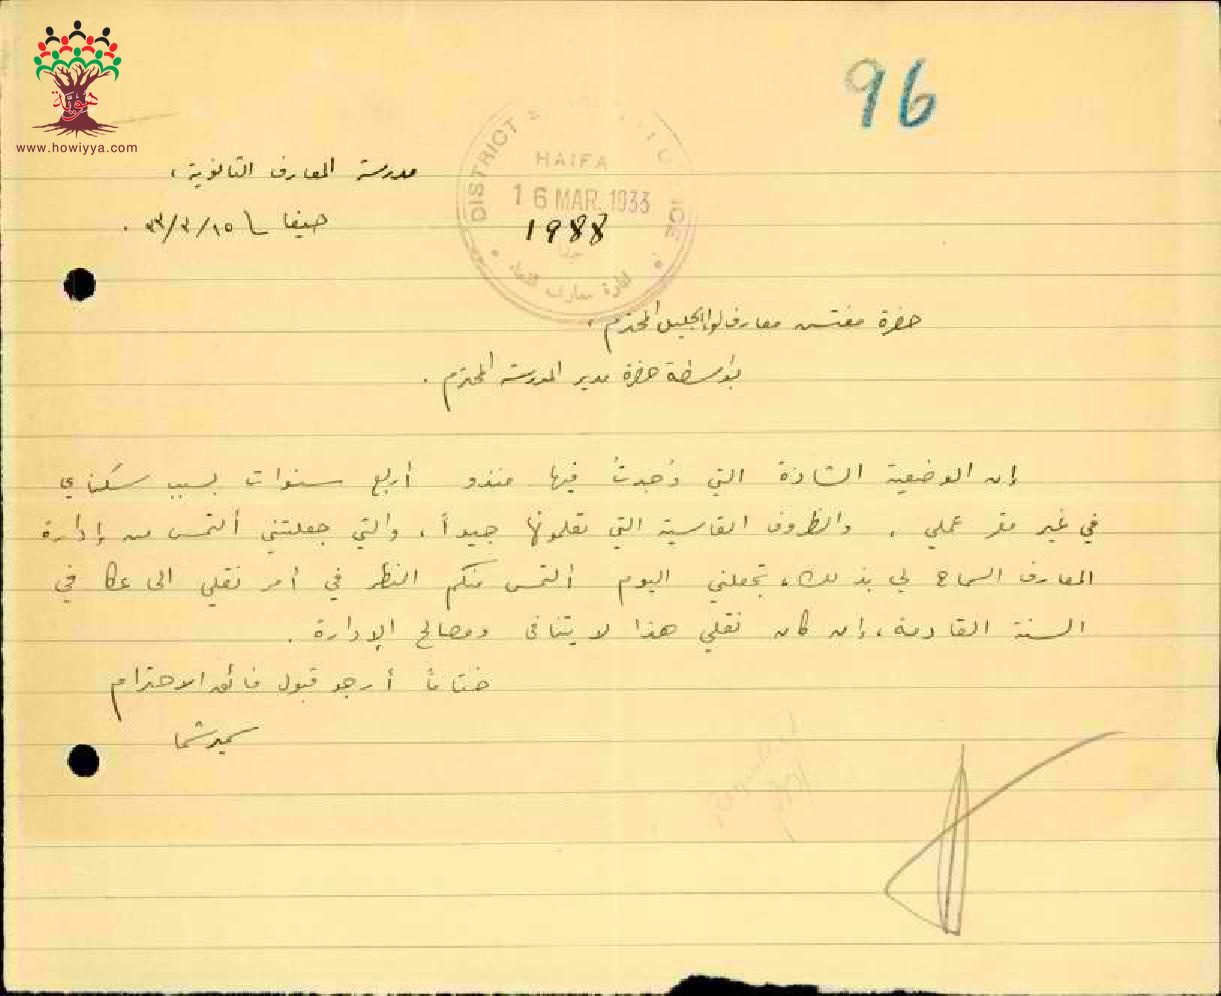 هوية
www.howiyya.com
96
DISTRICT
HAIFA
16 MAR 1933
1988
ادارة معارف
مدرسة المعارف الثانوية ،
حيفا ١٥/٣/٣٣ .
حضرة مفتش معارف لواء الجليل المحترم ،
بواسطة حضرة مدير المدرسة المحترم .
إن الوضعية الشاذة التي وُجدتُ فيها منذ أربع سنوات بسبب سكناي
في غير مقر عملي ، والظروف القاسية التي تعلمونها جيداً ، والتي جعلتني ألتمس من إدارة
المعارف السماح لي بذلك ، تجعلني اليوم ألتمس منكم النظر في أمر نقلي الى عكا في
السنة القادمة ، إن كان نقلي هذا لا يتنافى ومصالح الإدارة .
ختاماً أرجو قبول فائق الاحترام
سميد شما